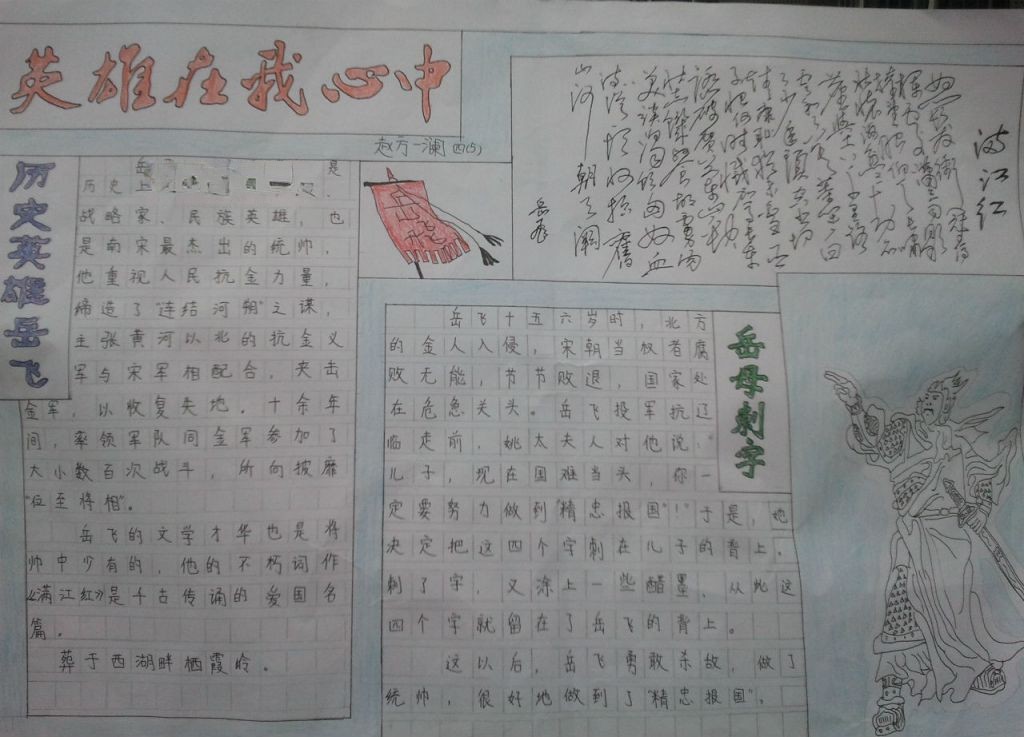 英雄在我心中
赵方一澜 四(5)
历史英雄岳飞
岳 是
历史上
战略家、民族英雄，也
是南宋最杰出的统帅，
他重视人民抗金力量，
缔造了“连结河朔”之谋，
主张黄河以北的抗金义
军与宋军相配合，夹击
金军，以收复失地。十余年
间，率领军队同金军参加了
大小数百次战斗，所向披靡
“位至将相”。
岳飞的文学才华也是将
帅中少有的，他的不朽词作
《满江红》是千古传诵的爱国名
篇。
葬于西湖畔栖霞岭。
满江红
怒发冲冠
壮志饥餐
笑谈渴饮匈奴血
待从头收拾旧
山河 朝天阙
岳飞
岳飞十五六岁时，北方
的金人入侵，宋朝当权者腐
败无能，节节败退，国家处
在危急关头。岳飞投军抗辽
临走前，姚太夫人对他说：“
儿子，现在国难当头，你一
定要努力做到“精忠报国”！”于是，她
决定把这四个字刺在儿子的背上。
刺了字，又涂上一些醋墨，从此这
四个字就留在了岳飞的背上。
这以后，岳飞勇敢杀敌，做了
统帅，很好地做到了“精忠报国”，
岳母刺字